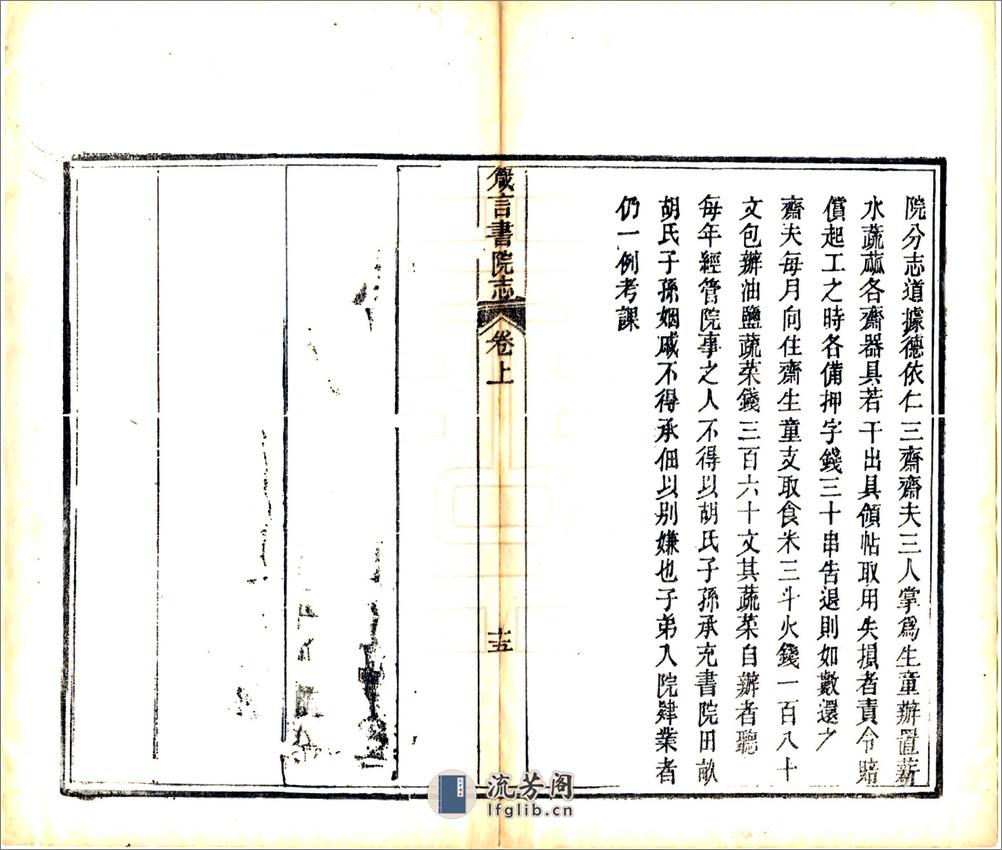 院分志道據德依仁三齋齋夫三人掌爲生童辦置薪
水蔬蓏各齋器具若干出具領帖取用失損者責令賠
償起工之時各備押字錢三十串告退則如數還之
齋夫每月向住齋生童支取食米三斗火錢一百八十
文包辦油鹽蔬菜錢三百六十文其蔬菜自辦者聽
每年經管院事之人不得以胡氏子孫承充書院田畝
胡氏子孫姻戚不得承佃以别嫌也子弟入院肄業者
仍一例考課
箴言書院志
卷上
十五
流芳阁
lfglib.cn